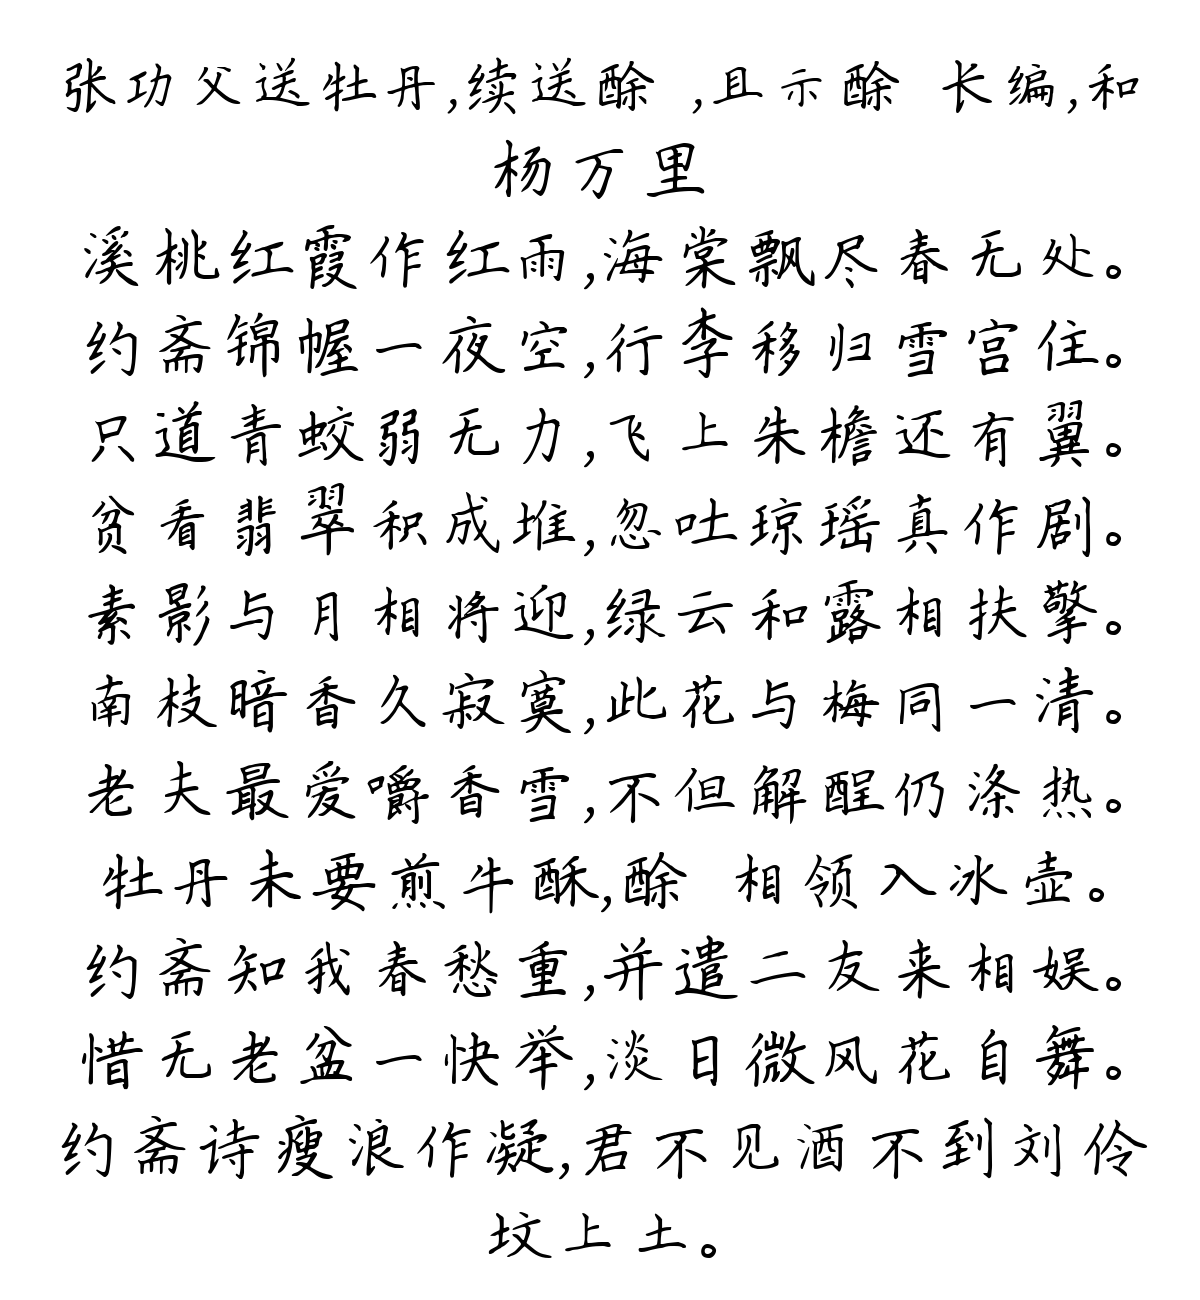 张功父送牡丹,续送酴 ,且示酴 长编,和
杨万里
溪桃红霞作红雨,海棠飘尽春无处。
约斋锦幄一夜空,行李移归雪宫住。
只道青蛟弱无力,飞上朱檐还有翼。
贫看翡翠积成堆,忽吐琼瑶真作剧。
素影与月相将迎,绿云和露相扶擎。
南枝暗香久寂寞,此花与梅同一清。
老夫最爱嚼香雪,不但解酲仍涤热。
牡丹未要煎牛酥,酴 相领入冰壶。
约斋知我春愁重,并遣二友来相娱。
惜无老盆一快举,淡日微风花自舞。
约斋诗瘦浪作凝,君不见酒不到刘伶
坟上土。